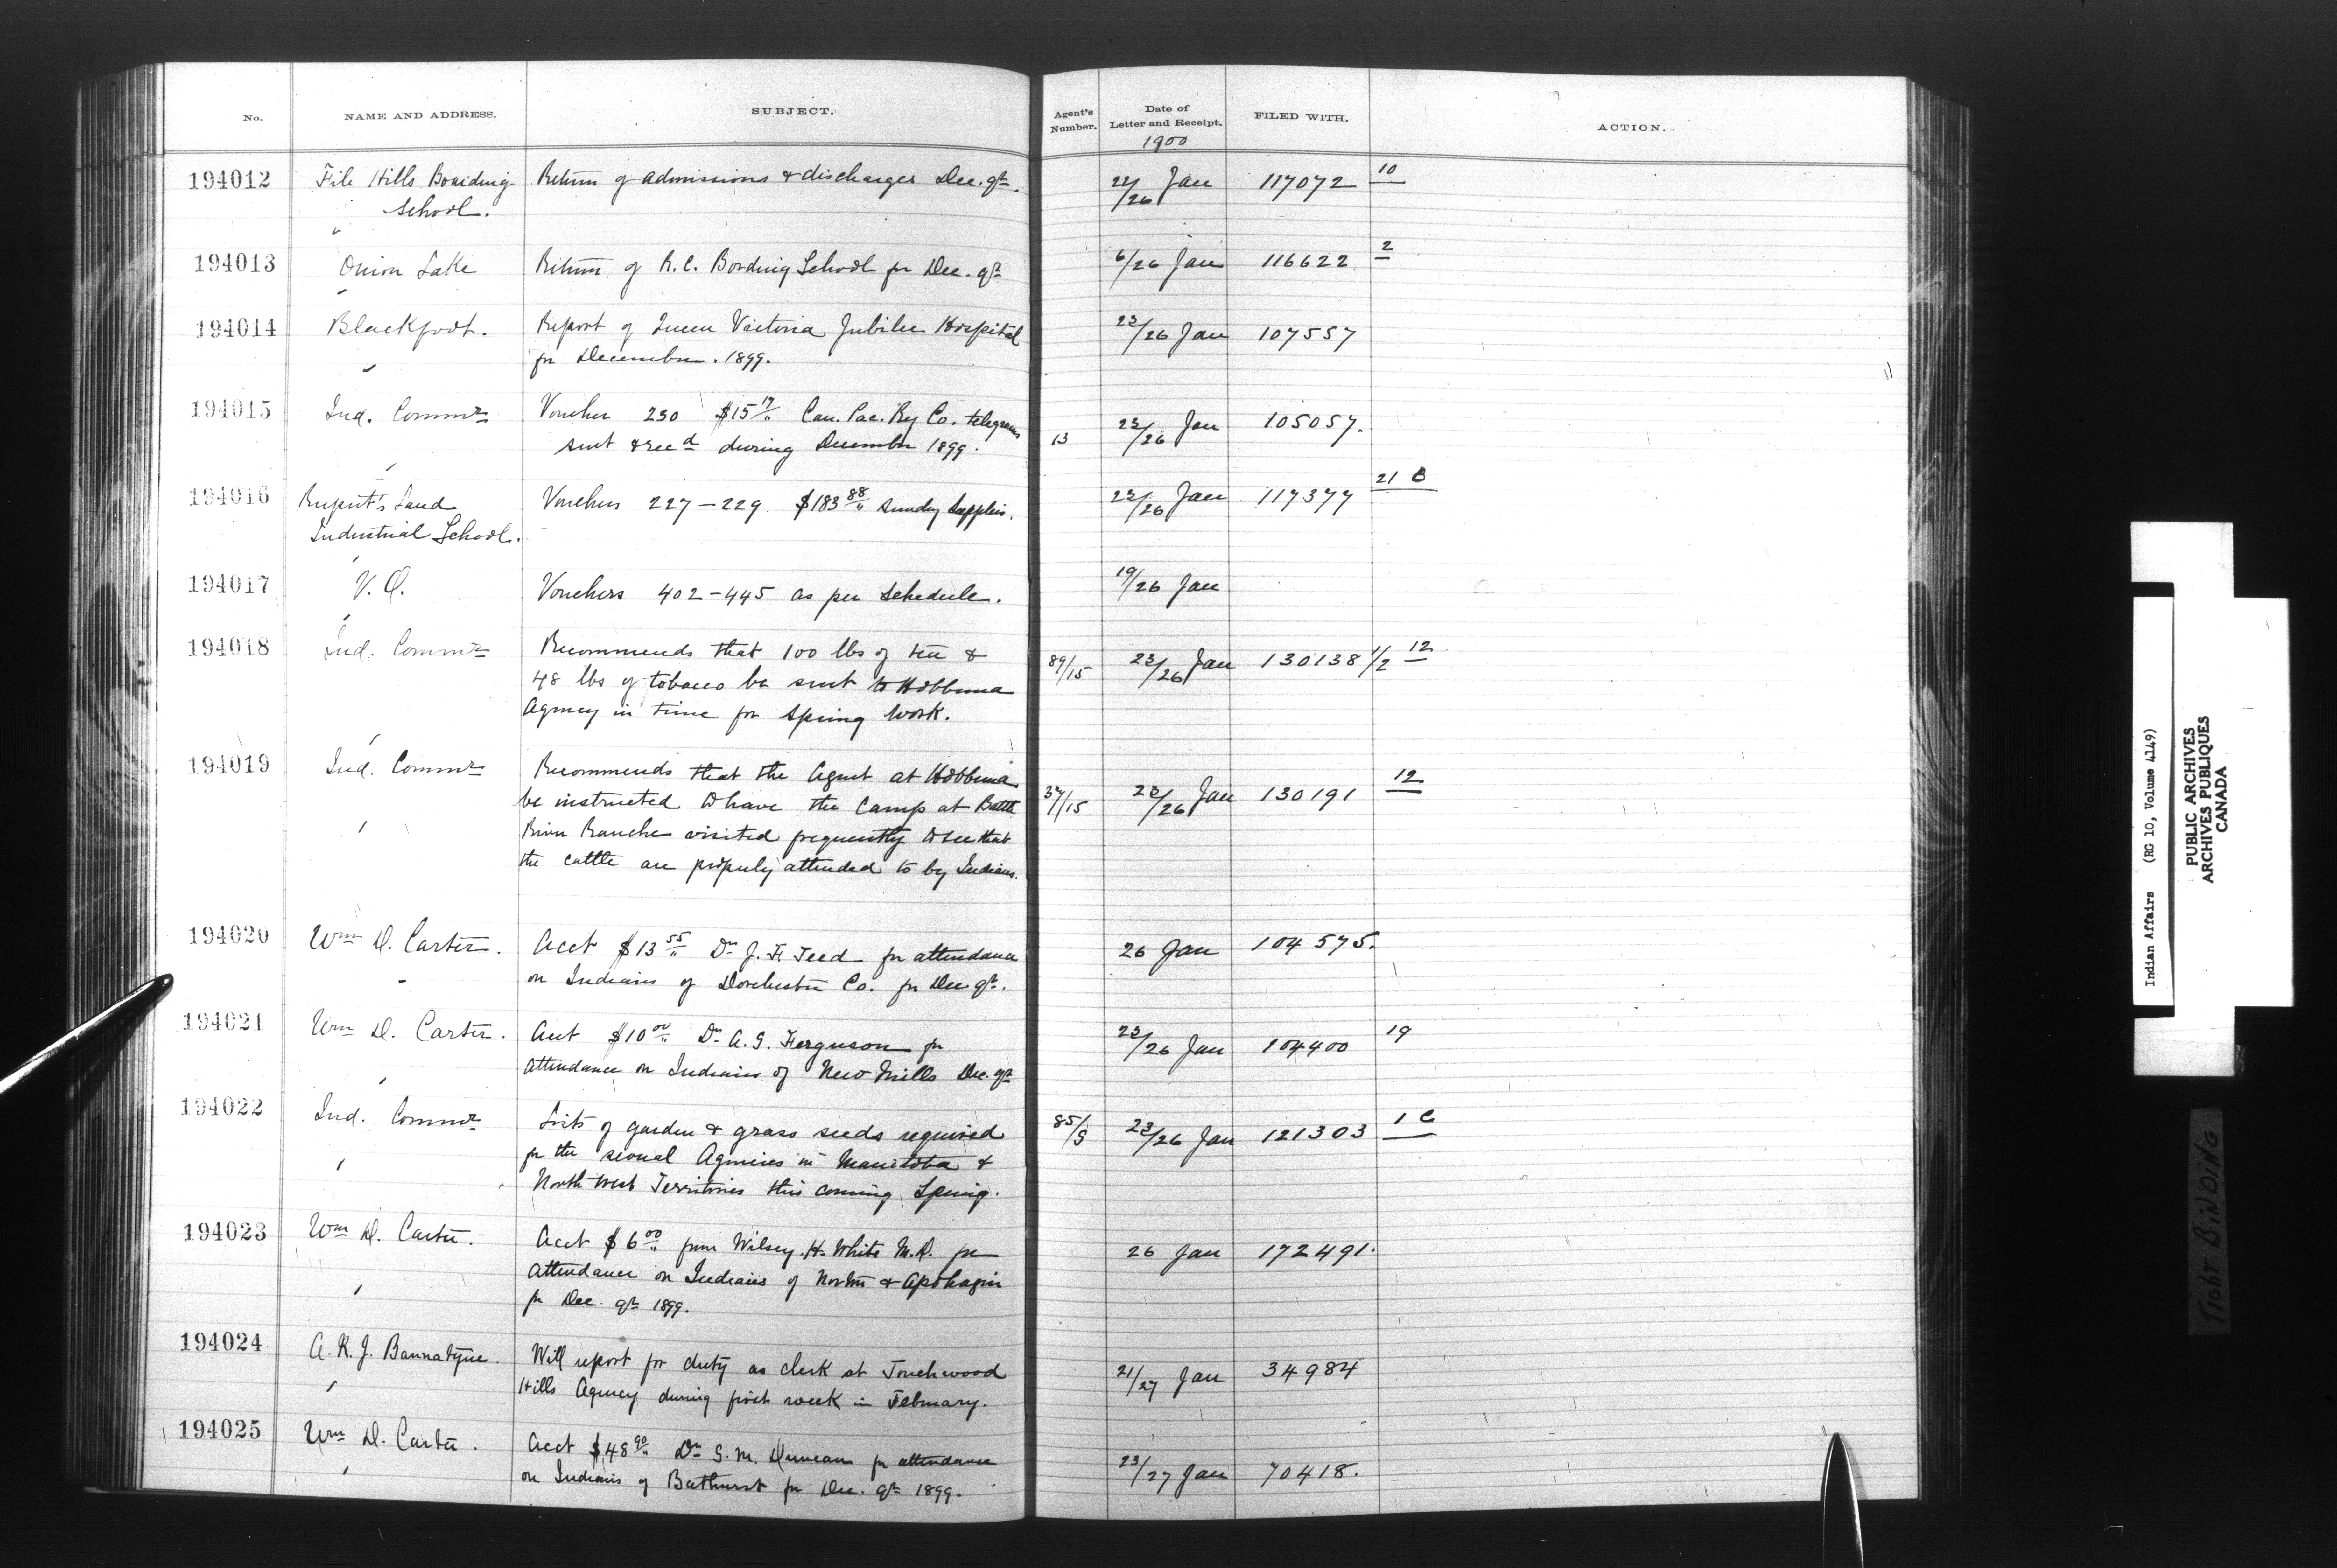 No. NAME AND ADDRESS. SUBJECT. Agent's Number. Date of Letter and Receipt. FILED WITH. ACTION.
1900
194012 File Hills Boarding School. Return of admissions & discharges Dec. qr. 22/26 Jan 117072 10
194013 Onion Lake Return of R.C. Bording School for Dec. qr 6/26 Jan 116622 2
194014 Blackfoot. Report of Queen Victoria Jubilee Hospital
for December. 1899. 23/26 Jan 107557
194015 Ind. Commr Voucher 230 $15 17/" Can. Pac. Ry Co. telegrams
sent & recd during December 1899. 13 23/26 Jan 105057.
194016 Rupert's Land Industrial School. Vouchers 227-229 $183 88/" Sundry Supplies. 23/26 Jan 117377 21 B
194017 V.O. Vouchers 402-445 as per Schedule. 19/26 Jan
194018 Ind. Commr Recommends that 100 lbs of tea &
48 lbs of tobacco be sent to Hobbema
Agency in time for Spring work. 89/15 23/26 Jan 130138 1/2 12
194019 Ind. Commr Recommends that the Agent at Hobbema
be instructed to have the Camp at Battle
River Ranche visited frequently to see that
the cattle are properly attended to by Indians. 37/15 23/26 Jan 130191 12
194020 Wm D. Carter. Acct $13 55/" Dr J. F. Teed for attendance
on Indians of Dorchester Co. for Dec qr. 26 Jan 104575.
194021 Wm D. Carter. Acct $10 00/" Dr A. G. Ferguson for
attendance on Indians of New Mills Dec. qr 23/26 Jan 104400 19
194022 Ind. Commr Lists of garden & grass seeds required
for the several Agencies in Manitoba &
North West Territories this coming Spring. 85/9 23/26 Jan 121303 1 C
194023 Wm D. Carter. Acct $6 00/" from Wilsey. H. White M.D. for
attendance on Indians of Norton & Apohaqin
for Dec. qr 1899. 26 Jan 172491.
194024 A. R. J. Bannatyne. Will report for duty as clerk at Touchwood
Hills Agency during first week in February. 21/27 Jan 34984
194025 Wm D. Carter. Acct $48 90/" Dr G. M. Duncan for attendance
on Indians of Bathurst for Dec. qr 1899. 23/27 Jan 70418.
Indian Affairs (RG 10, Volume 4149)
PUBLIC ARCHIVES
ARCHIVES PUBLIQUES
CANADA
TIGHT BINDING